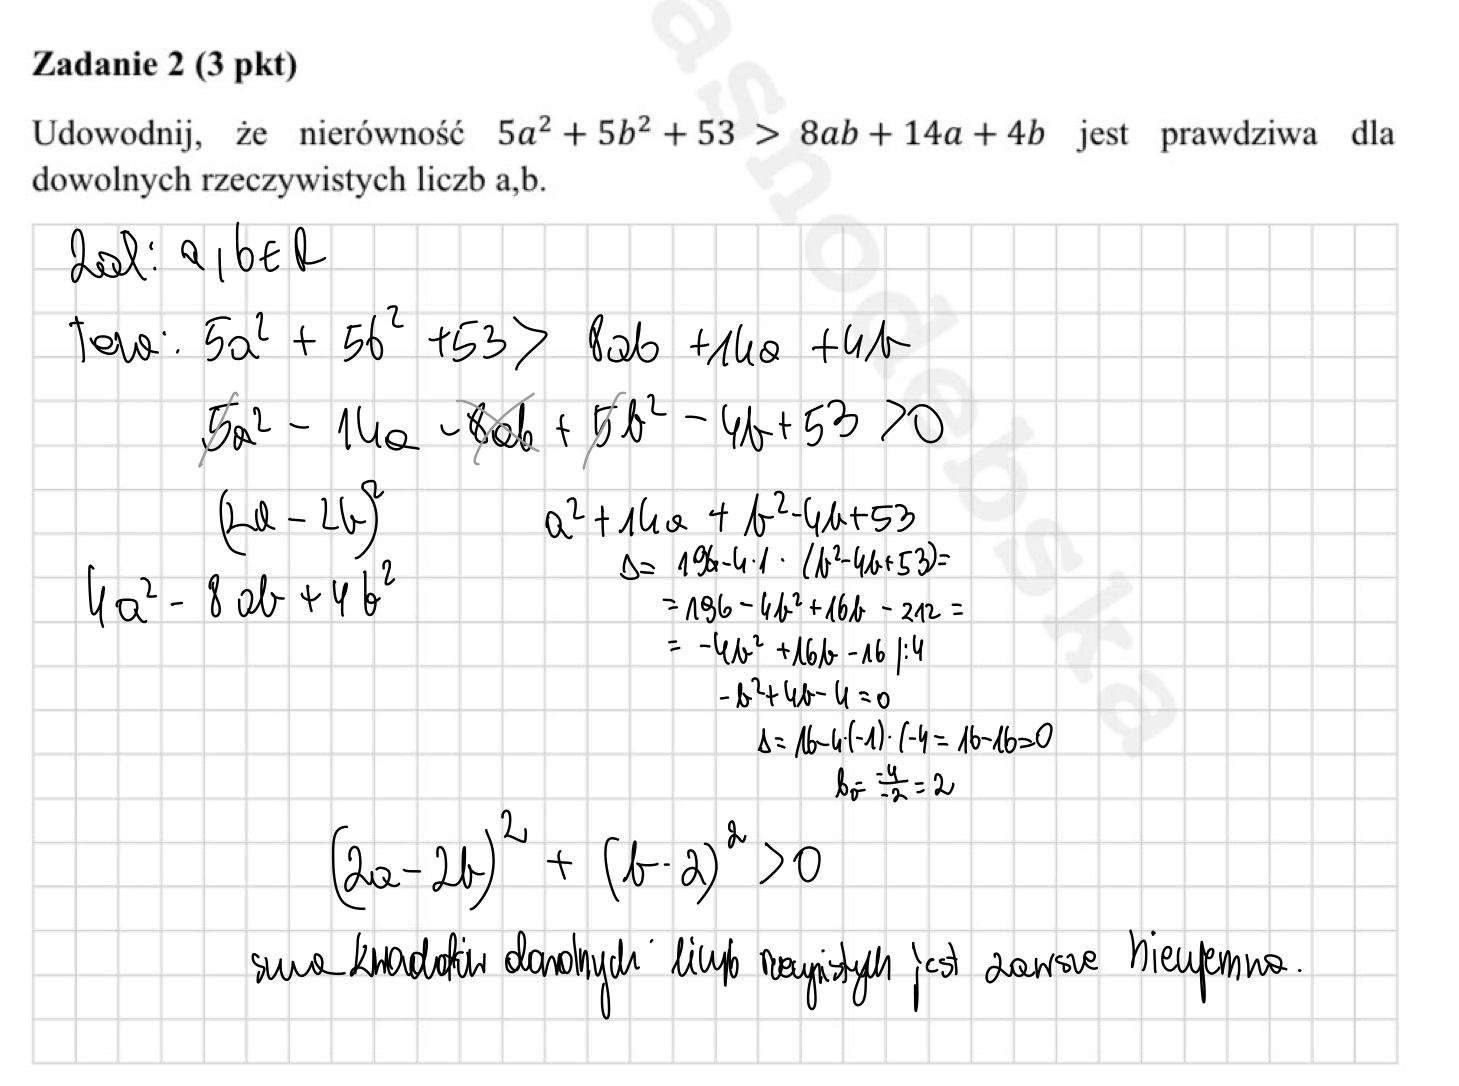 Zadanie 2 (3 pkt)
Udowodnij, że nierówność 5a² + 5b² + 53 > 8ab + 14a + 4b jest prawdziwa dla
dowolnych rzeczywistych liczb a,b.
Zał: a, b ∈ R
Teza: 5a² + 5b² + 53 > 8ab + 14a + 4b
5a² - 14a - 8ab + 5b² - 4b + 53 > 0
(2a - 2b)² a² + 14a + b² - 4b + 53
Δ = 196 - 4·1·(b² - 4b + 53) =
4a² - 8ab + 4b²
= 196 - 4b² + 16b - 212 =
= -4b² + 16b - 16 |:4
-b² + 4b - 4 = 0
Δ = 16 - 4·(-1)·(-4 = 16 - 16 = 0
b₀ = -4/-2 = 2
(2a - 2b)² + (b - 2)² > 0
suma kwadratów dowolnych liczb rzeczywistych jest zawsze nieujemna.
asnodebska